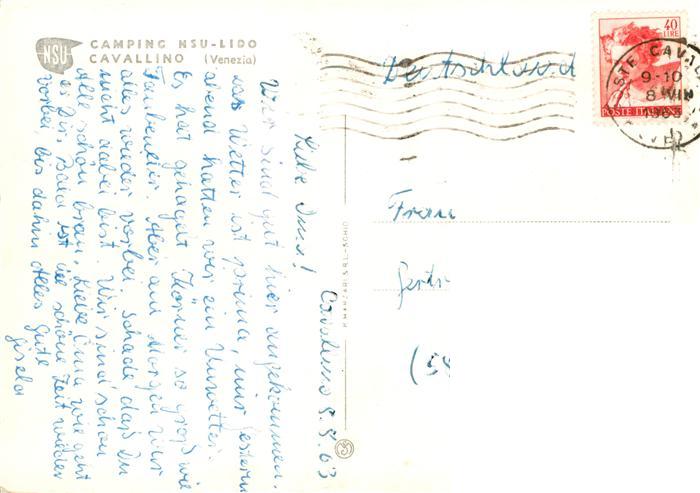 NSU
CAMPING NSU-LIDO
CAVALLINO (Venezia)
Deutschland
40
LIRE
POSTE ITALIANE
9-10
8
1963
Frau
(54
P. MARZARI S.R.L.-SCHIO
Cavallino 5.5.63
Liebe Oma!
Wir sind gut hier angekommen,
das Wetter ist prima, nur gestern
abend hatten wir ein Unwetter.
Es hat gehagelt Körner so groß wie
Taubeneier. Aber am Morgen war
alles wieder vorbei. Schade daß Du
nicht dabei bist. Wir sind schon
alle schön braun. Liebe Oma wie geht
es Dir, bald ist die schöne Zeit wieder
vorbei, bis dahin Alles Gute
Gisela